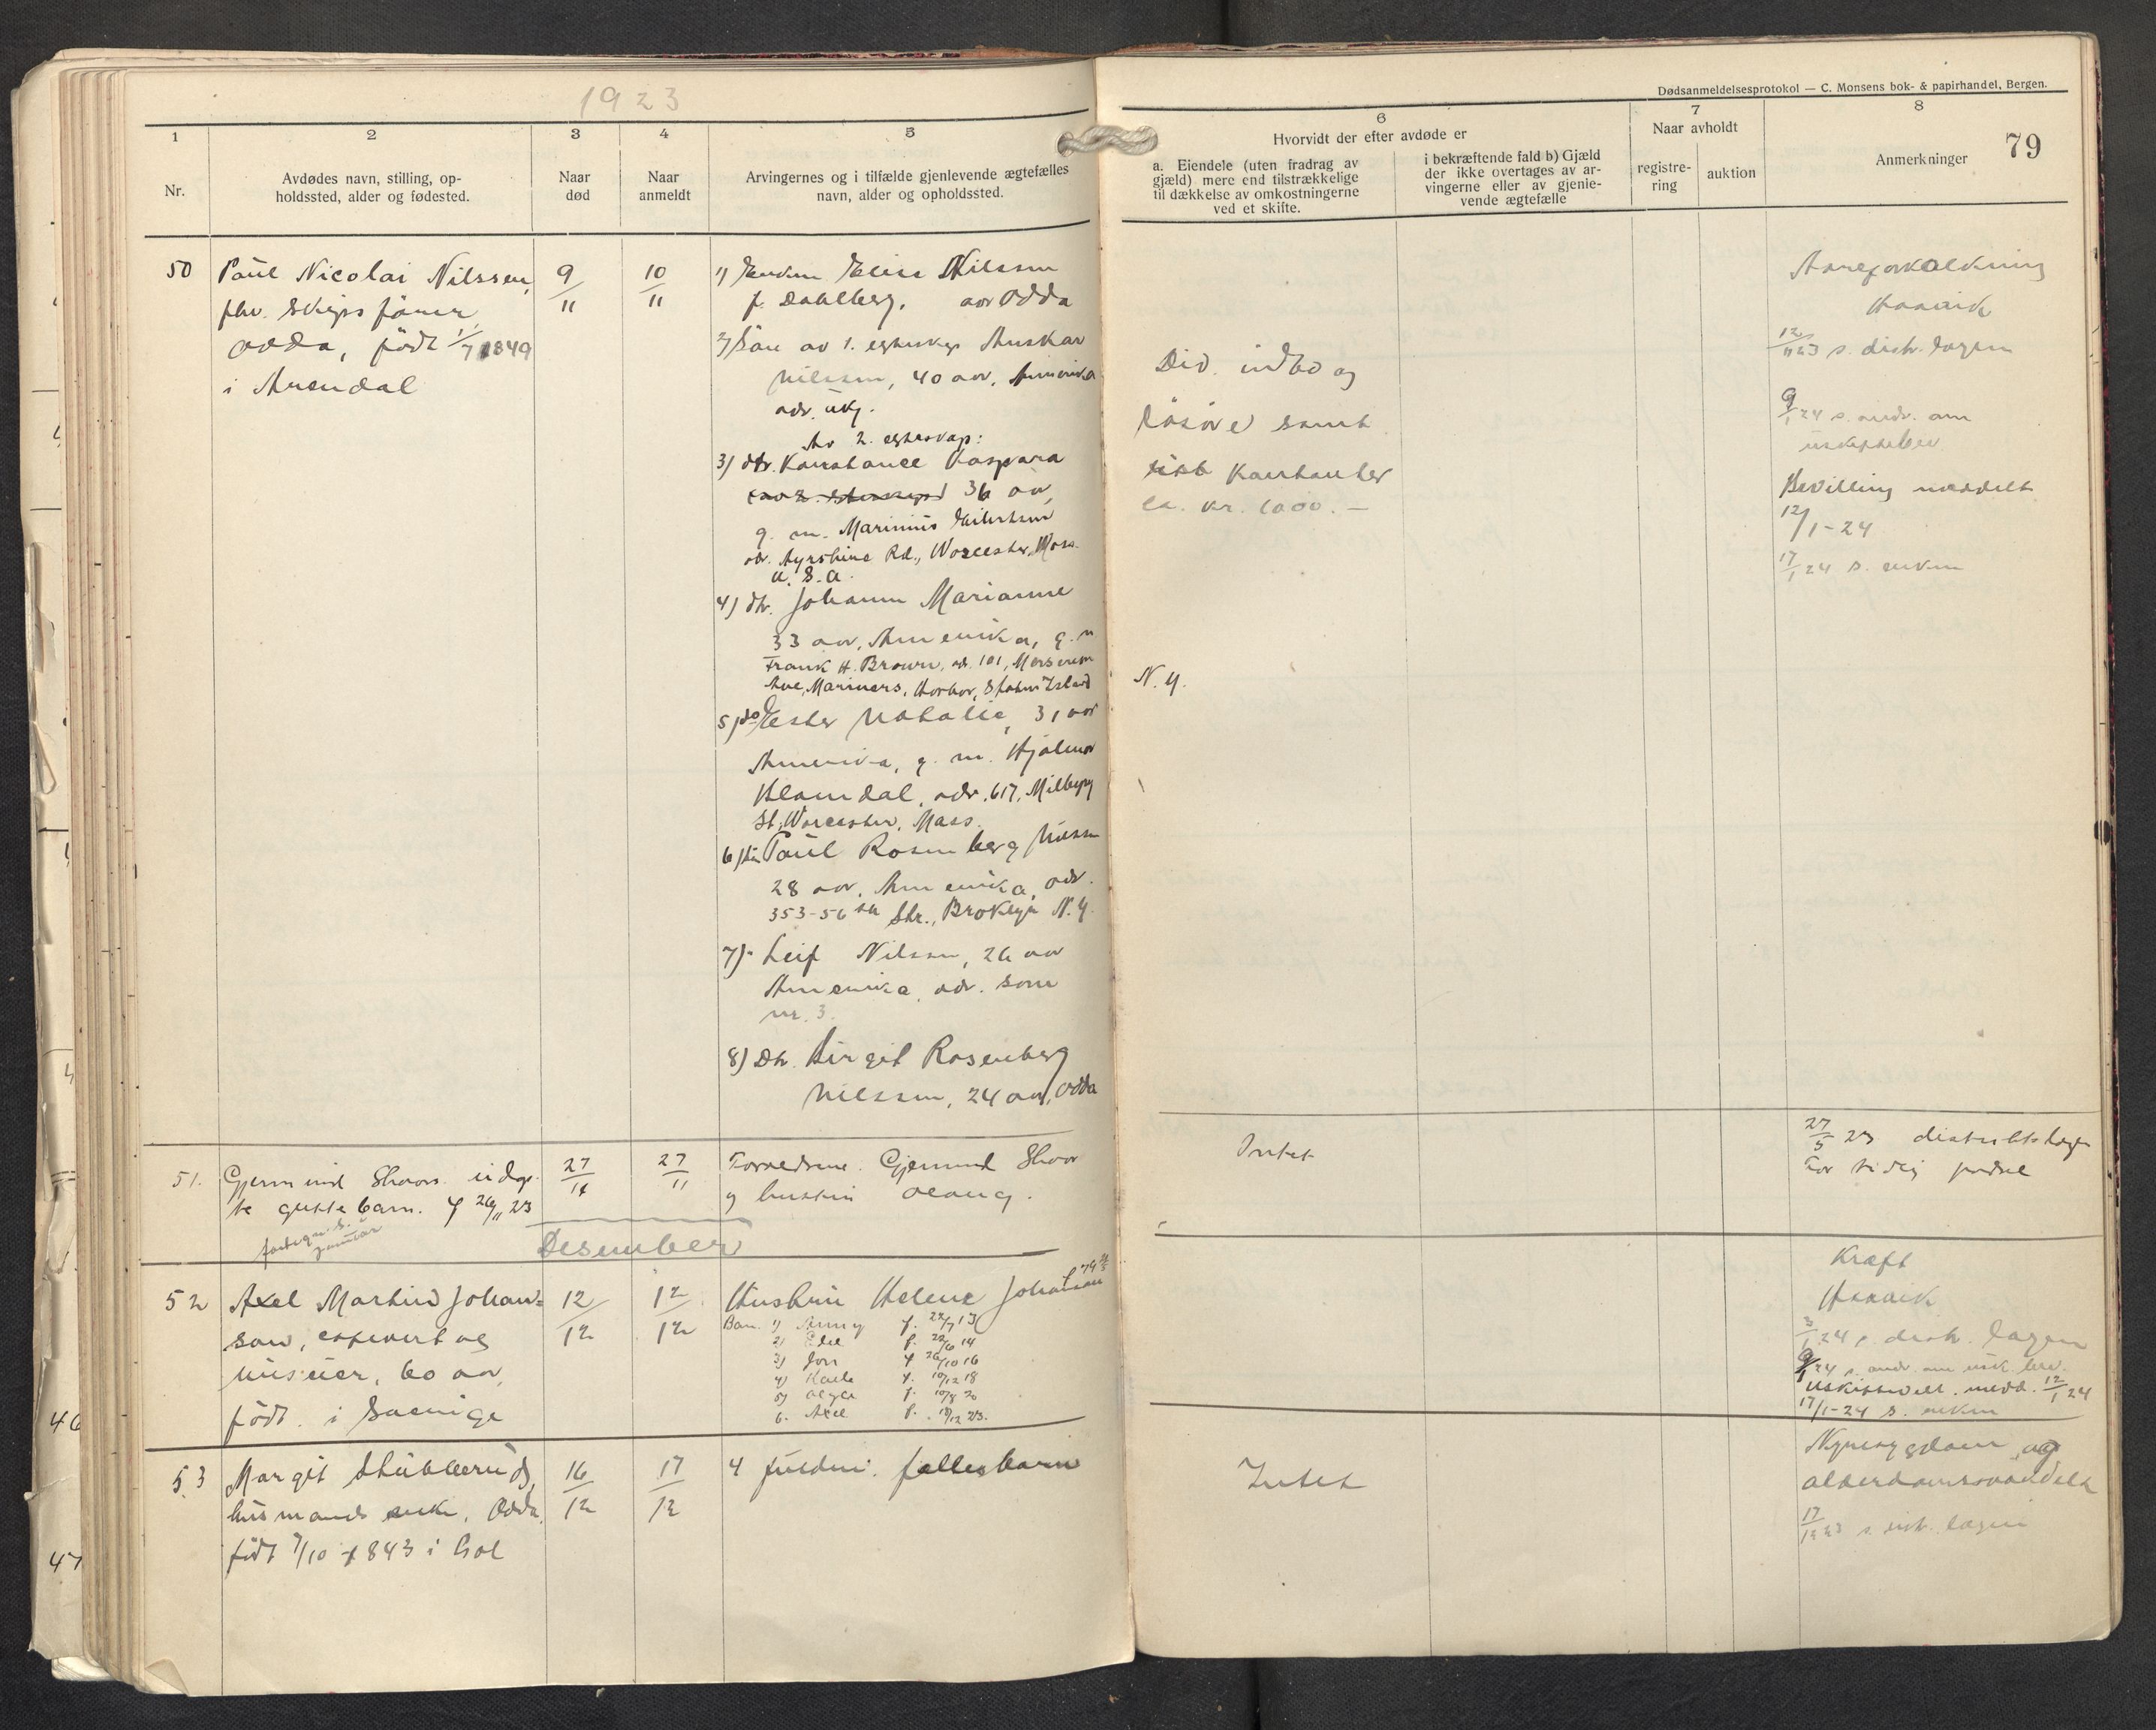 1923
Dødsanmeldelsesprotokol — C. Monsens bok- & papirhandel, Bergen.
79
1
2
3
4
5
6
7
8
Nr.
Avdødes navn, stilling, op-
holdssted, alder og fødested.
Naar
død
Naar
anmeldt
Arvingernes og i tilfælde gjenlevende ægtefælles
navn, alder og opholdssted.
Hvorvidt der efter avdøde er
a. Eiendele (uten fradrag av
gjæld) mere end tilstrækkelige
til dækkelse av omkostningerne
ved et skifte.
i bekræftende fald b) Gjæld
der ikke overtages av ar-
vingerne eller av gjenle-
vende ægtefælle
Naar avholdt
registre-
ring
auktion
Anmerkninger
50
Paul Nicolai Nilssen,
fhv. skipsfører
Odda, født 1/7 1849
i Arendal
9/11
10/11
1) Enken Elise Nilssen
f. Dahlberg, aar Odda
2) Søn av 1. egteskap Anskar
Nilssen, 40 aar, Amerika
adr. ukj.
Av 2. egteskap:
3) dtr. Constance Kaspara
36 aar,
g. m. Marinius Eilertsen
adr. Ayrshire Rd., Worcester, Mass.
U. S. A.
4) dtr. Johanne Marianne
33 aar, Amerika, g. m
Frank H. Brown, adr. 101,
Ave, Mariners, Harbor, Staten Island
N. Y.
5) do Ester Natalie, 31 aar
Amerika, g. m. Hjalmar
adr. 617, Milbury
St, Worcester, Mass.
6) søn Paul Rosenberg Nilssen
28 aar, Amerika, adr.
353-56 th Str., Broklyn N. Y.
7) " Leif Nilssen, 26 aar
Amerika, adr. som
nr. 3.
8) Dtr. Birgit Rosenberg
Nilssen, 24 aar, Odda
Div. indbo og
løsøre samt
kontanter
ca. kr. 1000. —
Aareforkalkning
12/11 23 s. distr. lægen
9/1 24 s. andr. om
uskiftebev
Bevilling meddelt
12/1-24
17/1 24 s. enken
51.
Gjermund udøp-
te guttebarn. f 26/11 23
27/11
27/11
Forældrene. Gjermund
og hustru
Intet
27/5 23 distriktslægen
For tidlig fødsel
Desember
52
Axel Martin Johan=
son, og
60 aar,
født i Sverige
12/12
12/12
Hustru Helene Johanson
Barn 1) Anny f. 22/7 13
2) f. 22/6 14
3) f 26/10 16
4) f. 10/12 18
5) f. 10/8 20
6. Axel f. 18/12 23.
Kræft
3/1 24 s. distr. lægen
9/1 24 s. andr. om usk. bev.
medd. 12/1 24
17/1-24 s. enken
53
Margit
husmands enke, Odda,
født 7/10 1843 i Gol
16/12
17/12
4 fuldm. fællesbarn
Intet
Nyresygdom og
alderdomssvakhet
17/12 23 s. distr. lægen
46
47